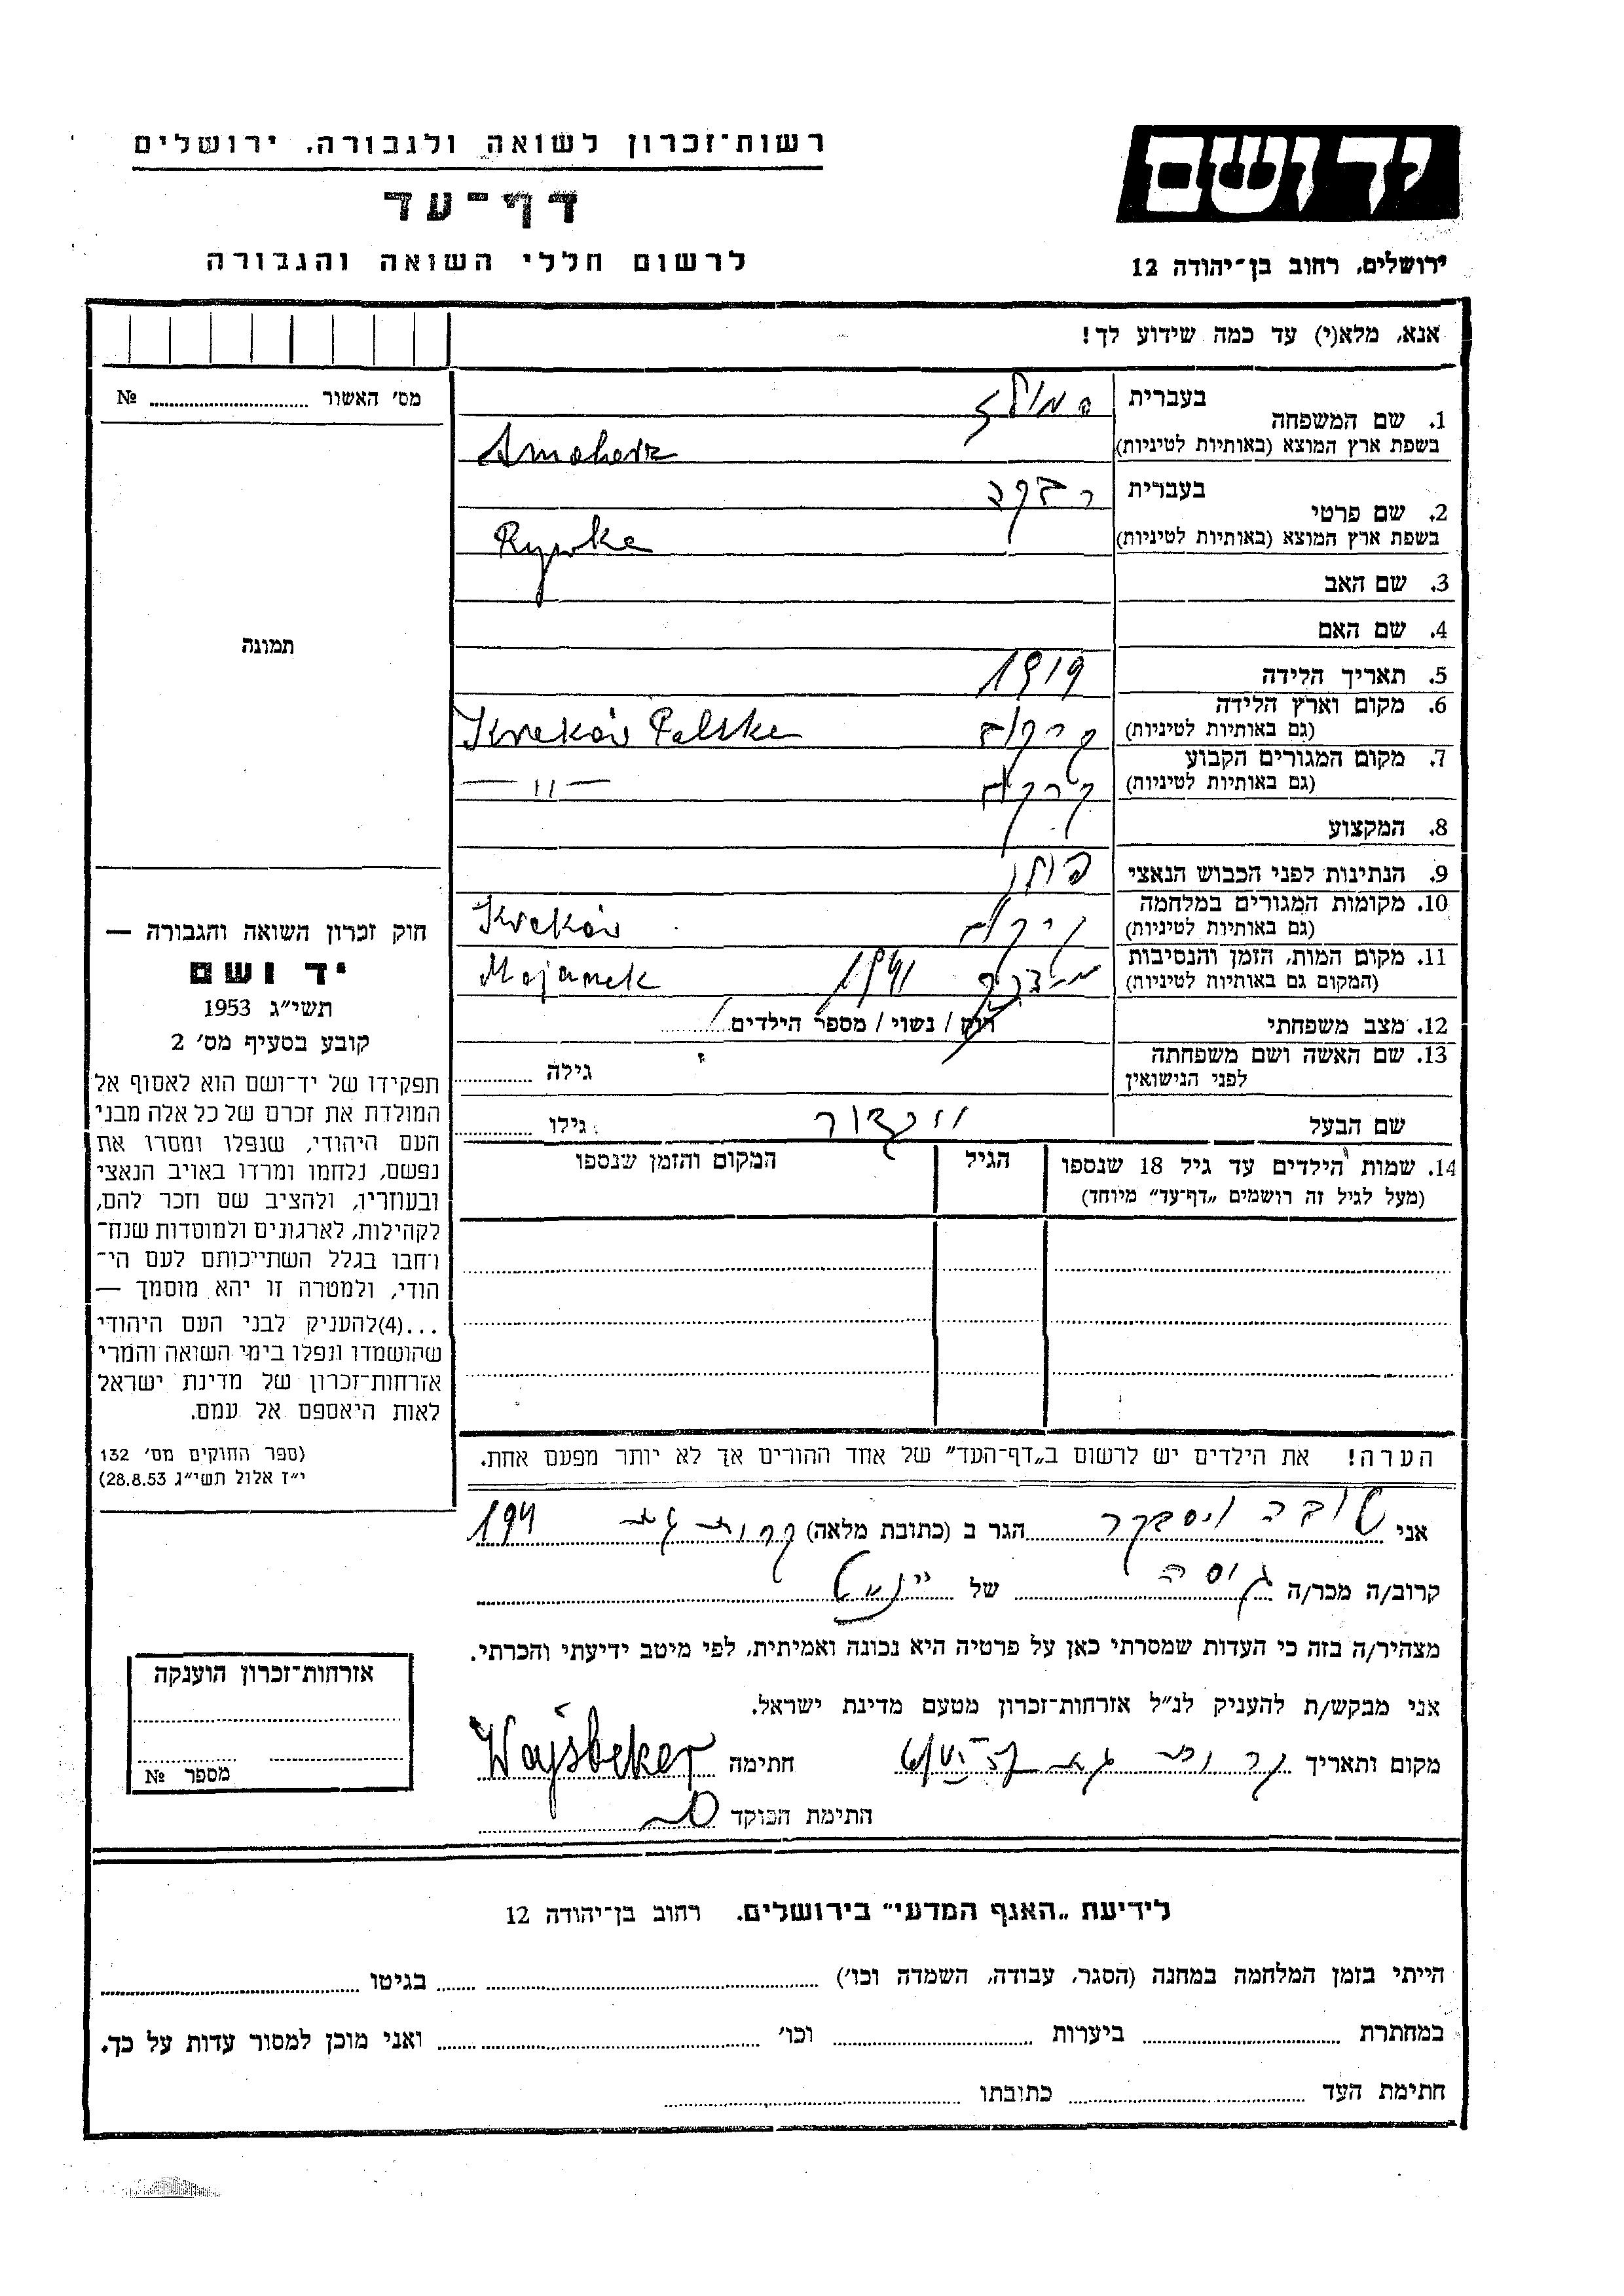 רשות־זכרון לשואה ולגבורה, ירושלים
דף־עד
לרשום חללי השואה והגבורה
יד ושם
ירושלים, רחוב בן־יהודה 12
אנא, מלא(י) עד כמה שידוע לך!
מס׳ האשור № 
1. שם המשפחה
בעברית
בשפת ארץ המוצא (באותיות לטיניות)
2. שם פרטי
בעברית רבקה
בשפת ארץ המוצא (באותיות לטיניות) Rywka
3. שם האב
4. שם האם
5. תאריך הלידה 1919
6. מקום וארץ הלידה
(גם באותיות לטיניות) קרקוב Kraków Polska
7. מקום המגורים הקבוע
(גם באותיות לטיניות) קרקוב — 11 —
8. המקצוע
9. הנתינות לפני הכבוש הנאצי
10. מקומות המגורים במלחמה
(גם באותיות לטיניות) קרקוב Kraków
11. מקום המות, הזמן והנסיבות
(המקום גם באותיות לטיניות) 1941 Majanek
12. מצב משפחתי רווק / נשוי / מספר הילדים
13. שם האשה ושם משפחתה
לפני הנישואין גילה
שם הבעל גילו
14. שמות הילדים עד גיל 18 שנספו
(מעל לגיל זה רושמים „דף־עד” מיוחד)
הגיל
המקום והזמן שנספו
הערה! את הילדים יש לרשום ב„דף־העד” של אחד ההורים אך לא יותר מפעם אחת.
תמונה
חוק זכרון השואה והגבורה —
יד ושם
תשי״ג 1953
קובע בסעיף מס׳ 2
תפקידו של יד־ושם הוא לאסוף אל
המולדת את זכרם של כל אלה מבני
העם היהודי, שנפלו ומסרו את
נפשם, נלחמו ומרדו באויב הנאצי
ובעוזריו, ולהציב שם וזכר להם,
לקהילות, לארגונים ולמוסדות שנח־
רחבו בגלל השתייכותם לעם הי־
הודי, ולמטרה זו יהא מוסמך —
...(4)להעניק לבני העם היהודי
שהושמדו ונפלו בימי השואה והמרי
אזרחות־זכרון של מדינת ישראל
לאות היאספם אל עמם.
(ספר החוקים מס׳ 132
י״ז אלול תשי״ג 28.8.53)
אני טובה ויסבקר הגר ב (כתובת מלאה) קרית גת 194
קרוב/ה מכר/ה גיסה של
מצהיר/ה בזה כי העדות שמסרתי כאן על פרטיה היא נכונה ואמיתית, לפי מיטב ידיעתי והכרתי.
אני מבקש/ת להעניק לנ״ל אזרחות־זכרון מטעם מדינת ישראל.
מקום ותאריך קרית גת חתימה Wajsbeker
חתימת הפוקד
אזרחות־זכרון הוענקה
מספר №
לידיעת „האגף המדעי” בירושלים, רחוב בן־יהודה 12
הייתי בזמן המלחמה במחנה (הסגר, עבודה, השמדה וכו׳) בגיטו
במחתרת ביערות וכו׳ ואני מוכן למסור עדות על כך.
חתימת העד כתובתו